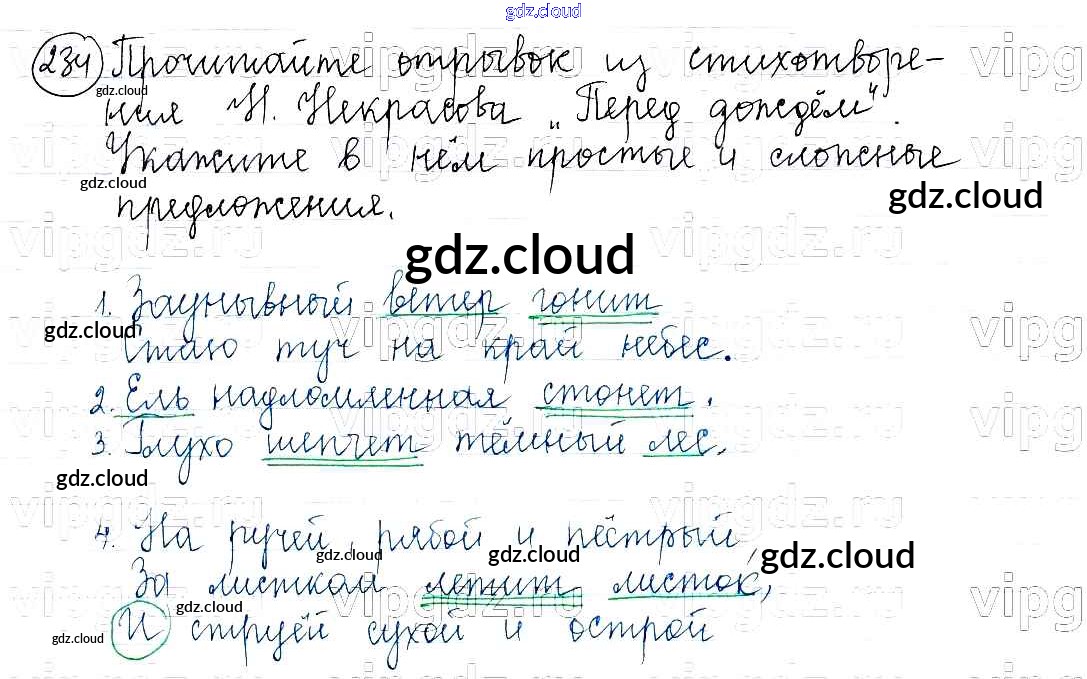 gdz.cloud
234 Прочитайте отрывок из стихотворе-
gdz.cloud
ния Н. Некрасова „Перед дождём".
Укажите в нём простые и сложные
gdz.cloud
gdz.cloud
предложения.
vipgdz.ru
gdz.cloud
1. Заунывный ветер гонит
gdz.cloud
Стаю туч на край небес.
2. Ель надломленная стонет.
3. Глухо шепчет тёмный лес.
gdz.cloud
vipgdz.ru
4. На ручей, рябой и пёстрый,
gdz.cloud
gdz.cloud
gdz.cloud
За листком летит листок,
gdz.cloud
И струёй сухой и острой
gdz.cloud